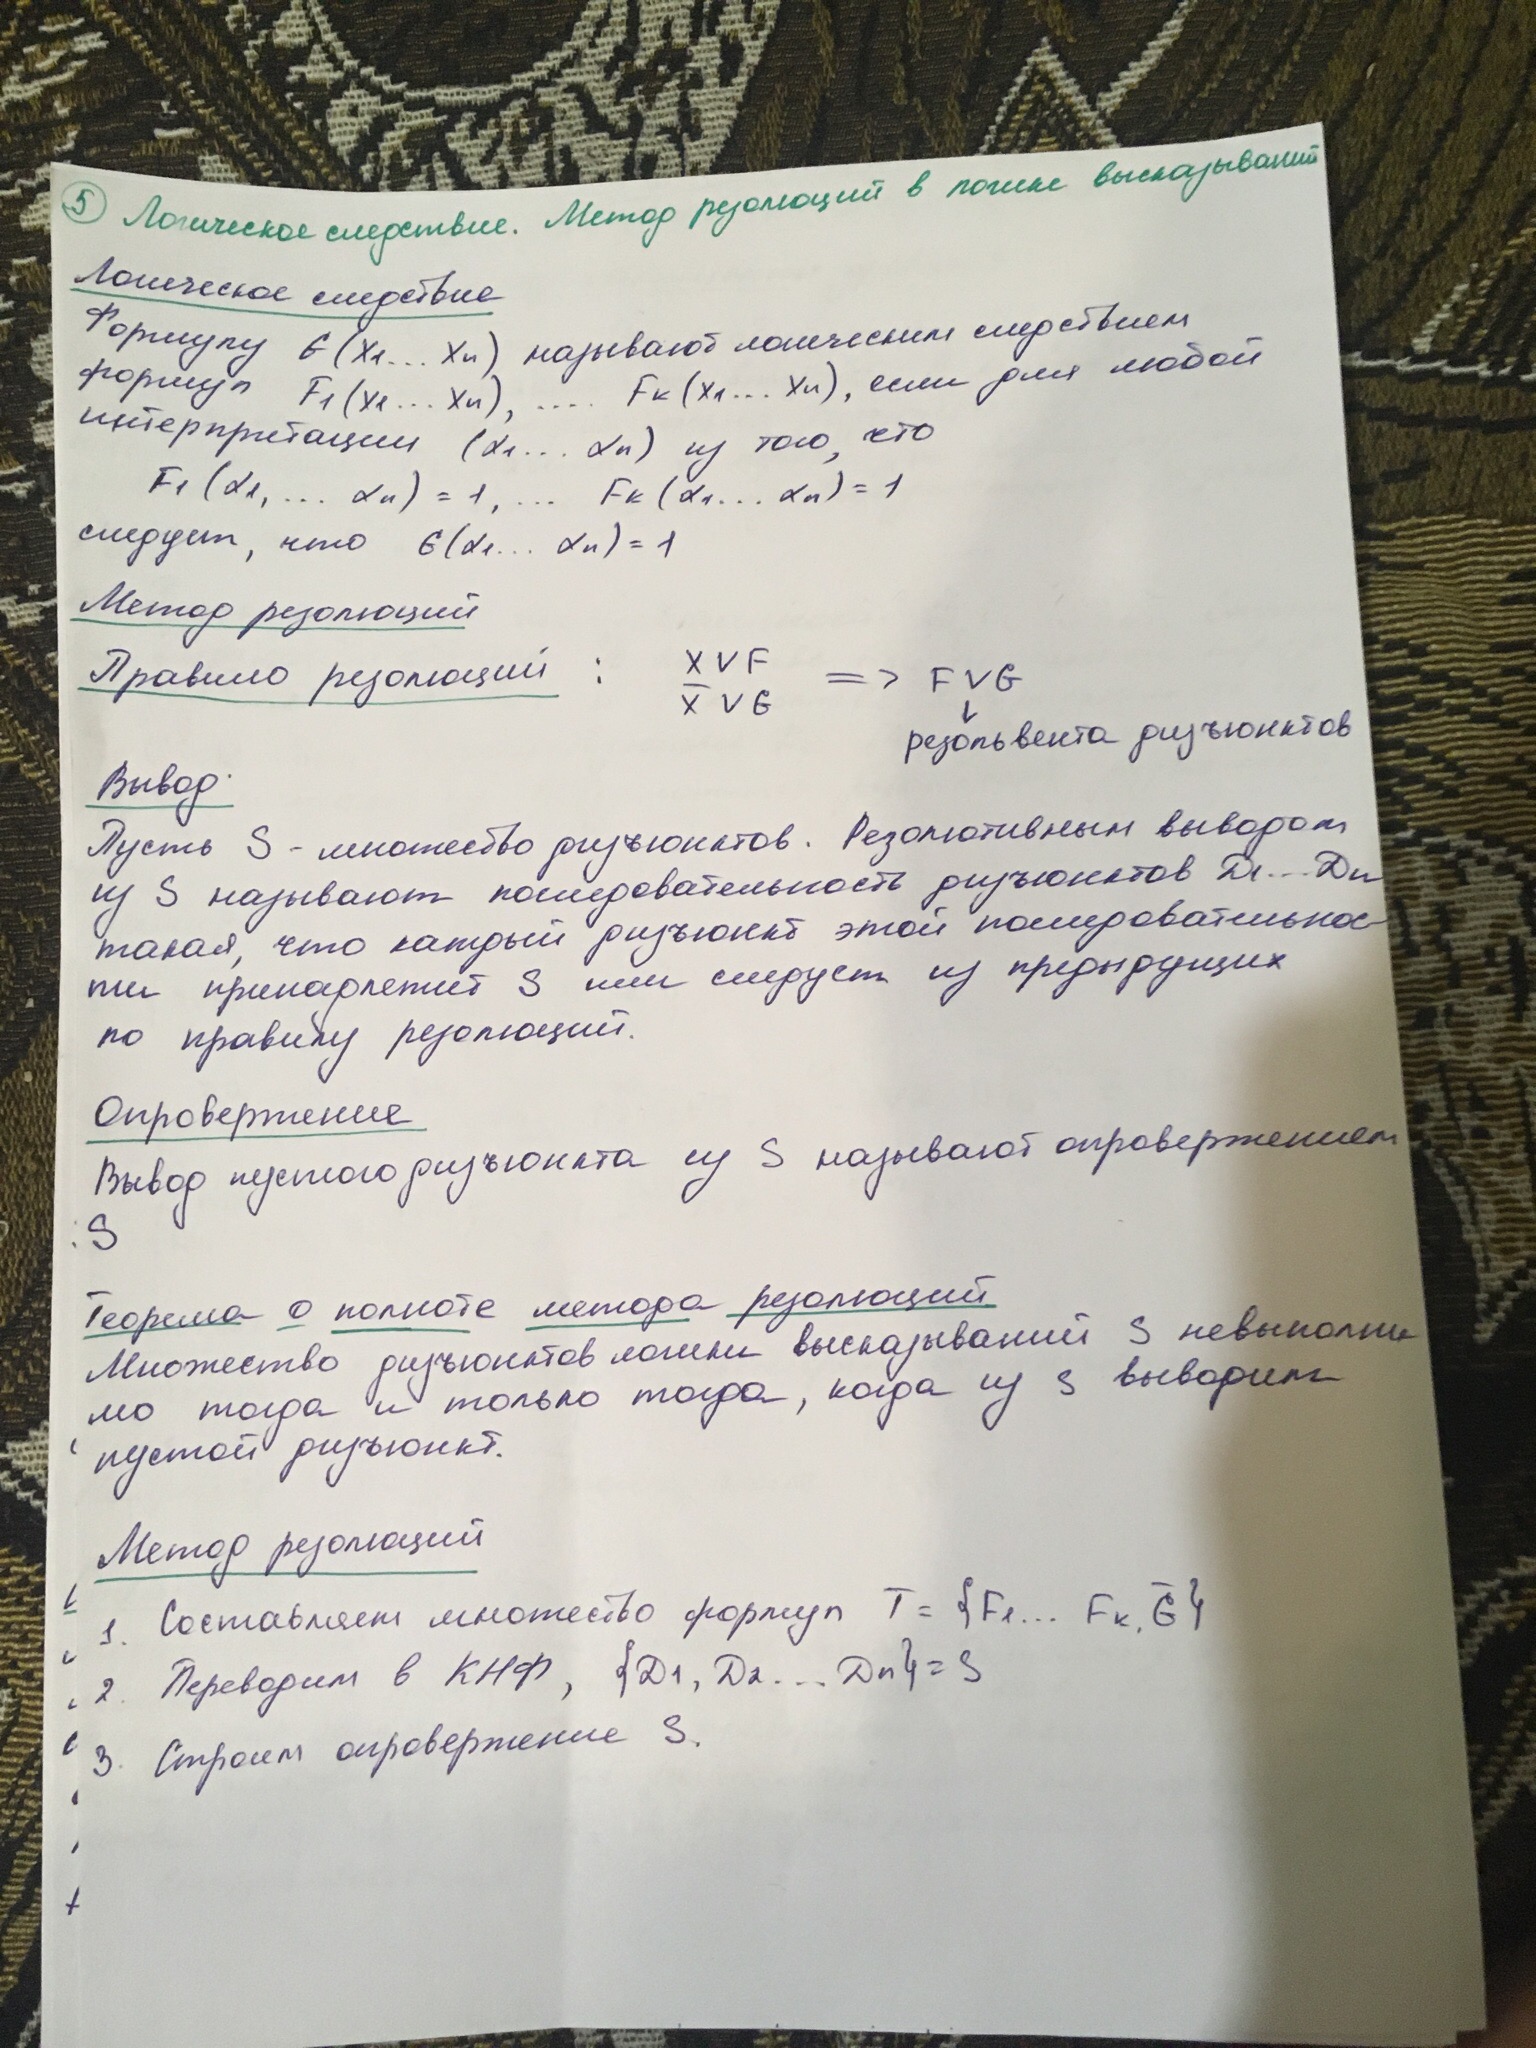 5 Логическое следствие. Метод резолюций в логике высказываний
Логическое следствие
Формулу G(x1... xn) называют логическим следствием
формул F1(x1... xn), .... Fk(x1... xn), если для любой
интерпретации (α1... αn) из того, что
F1(α1, ... αn) = 1, ... Fk(α1... αn) = 1
следует, что G(α1... αn) = 1
Метод резолюций
Правило резолюций : X ∨ F => F ∨ G
X̅ ∨ G ↓
резольвента дизъюнктов
Вывод.
Пусть S - множество дизъюнктов. Резолютивным выводом
из S называют последовательность дизъюнктов D1...Dn
такая, что каждый дизъюнкт этой последовательнос
ти принадлежит S или следует из предыдущих
по правилу резолюций.
Опровержение
Вывод пустого дизъюнкта из S называют опровержением
S
Теорема о полноте метода резолюций
Множество дизъюнктов логики высказываний S невыполни
мо тогда и только тогда, когда из S выводим
пустой дизъюнкт.
Метод резолюций
1. Составляем множество формул T = {F1... Fk, G̅}
2. Переводим в КНФ, {D1, D2... Dn} = S
3. Строим опровержение S.